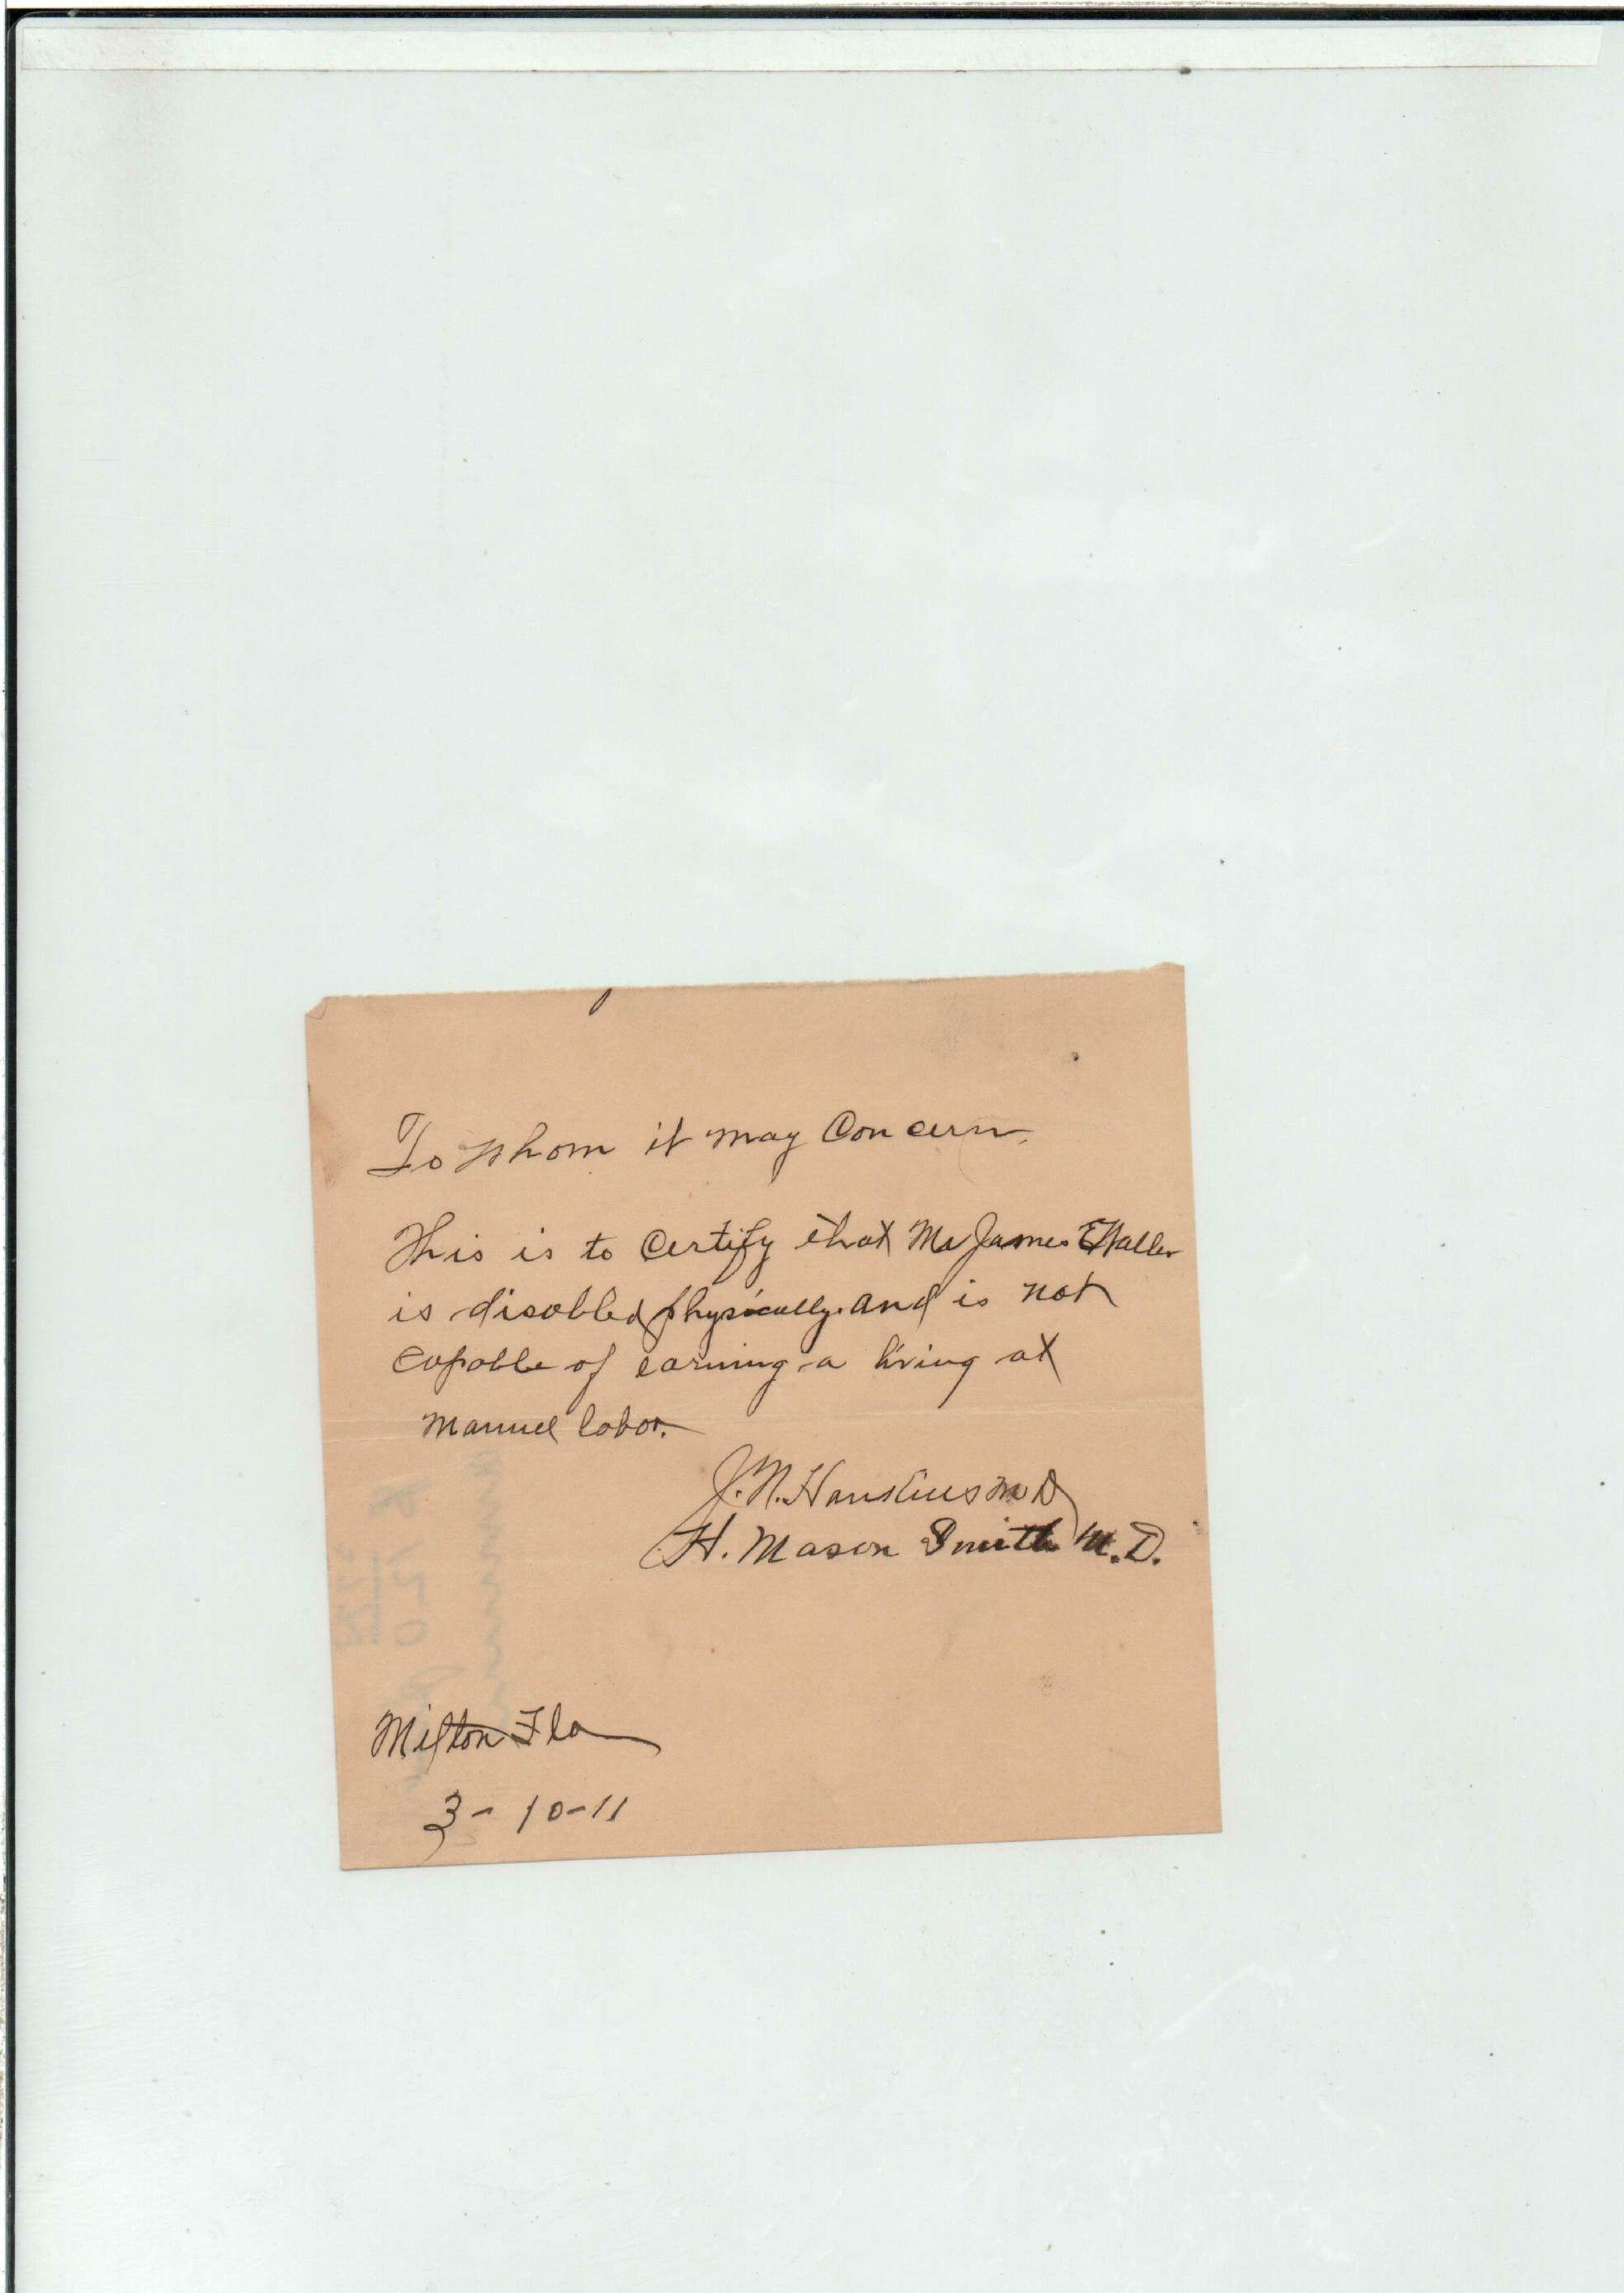 To whom it may Concern,
This is to Certify that Mr James E Waller
is disabled physically and is not
capable of earning a living at
Manuel labor.
J. N. M D
H. Mason Smith M.D.
Milton Fla
3-10-11